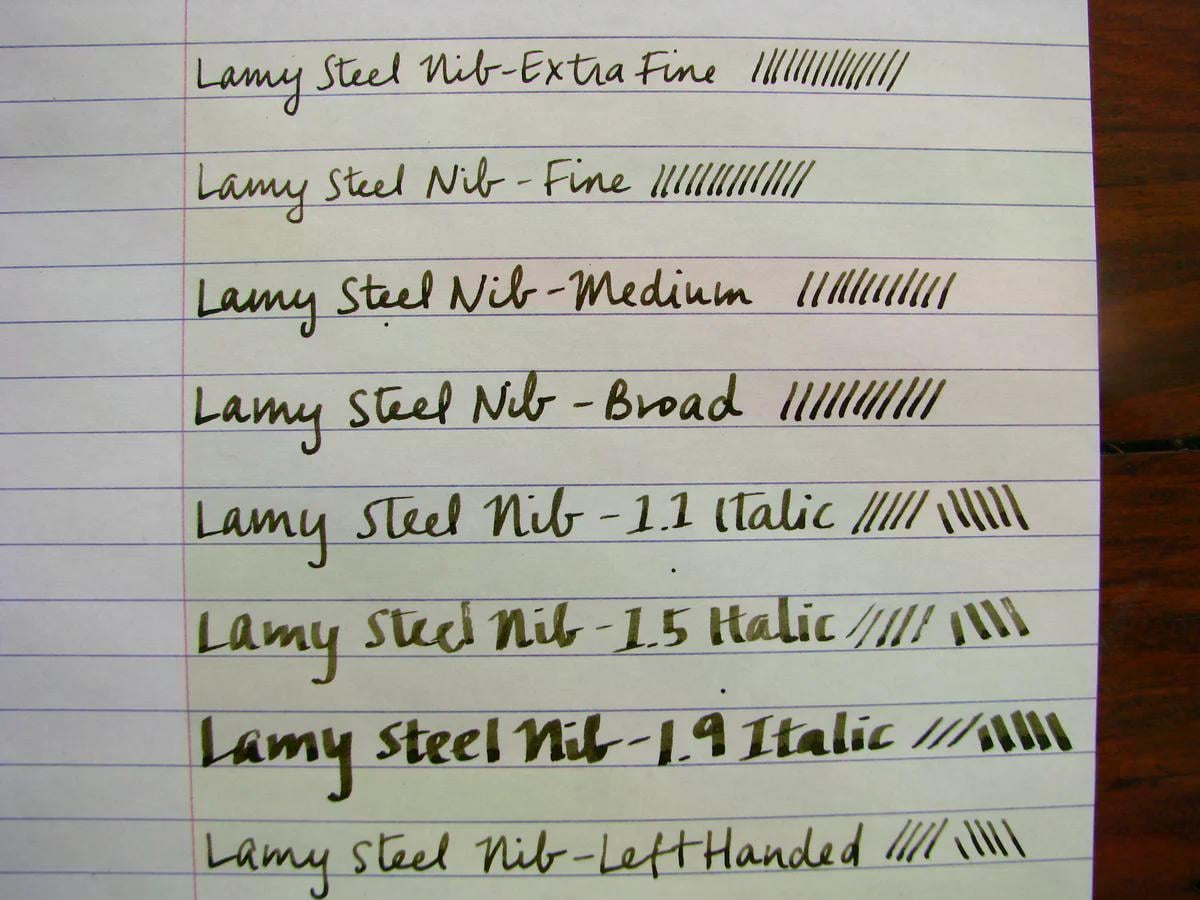 Lamy Steel Nib-Extra Fine
Lamy Steel Nib - Fine
Lamy Steel Nib - Medium
Lamy Steel Nib - Broad
Lamy Steel Nib - 1.1 Italic
Lamy Steel Nib - 1.5 Italic
Lamy Steel Nib - 1.9 Italic
Lamy Steel Nib - Left Handed